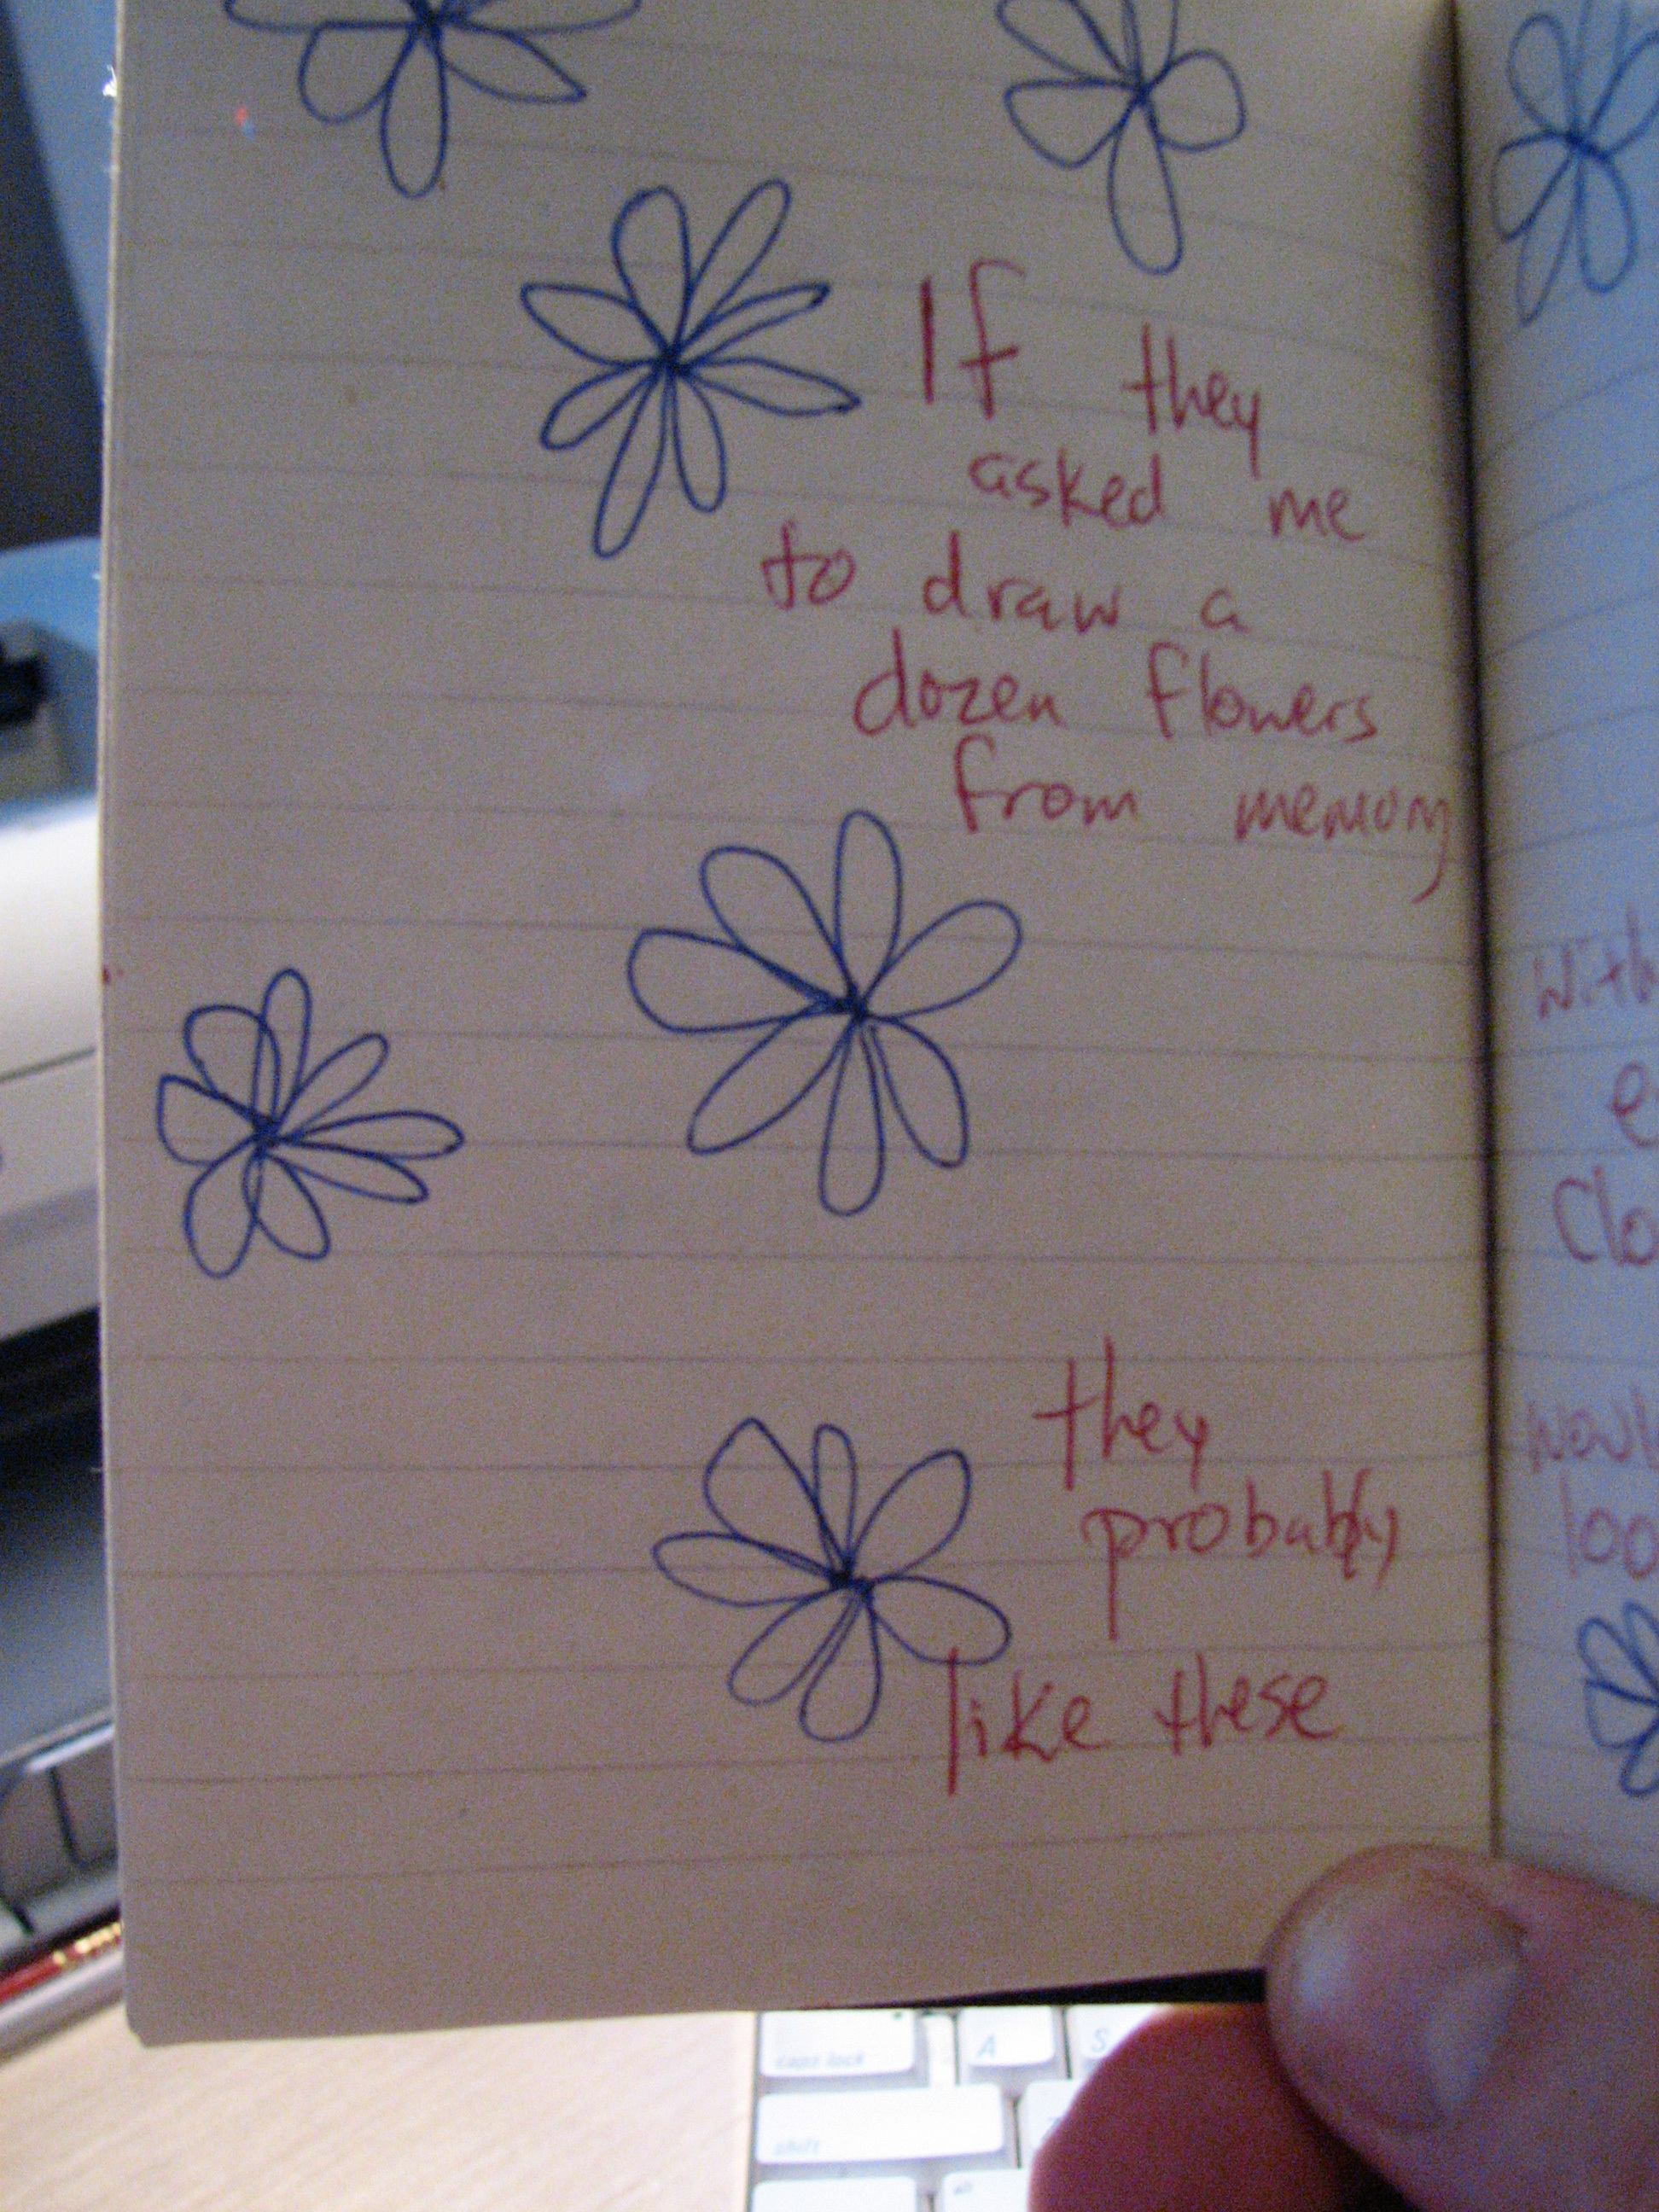 If they
asked me
to draw a
dozen flowers
from memory
they
probably
like these
caps lock
A
S
shift